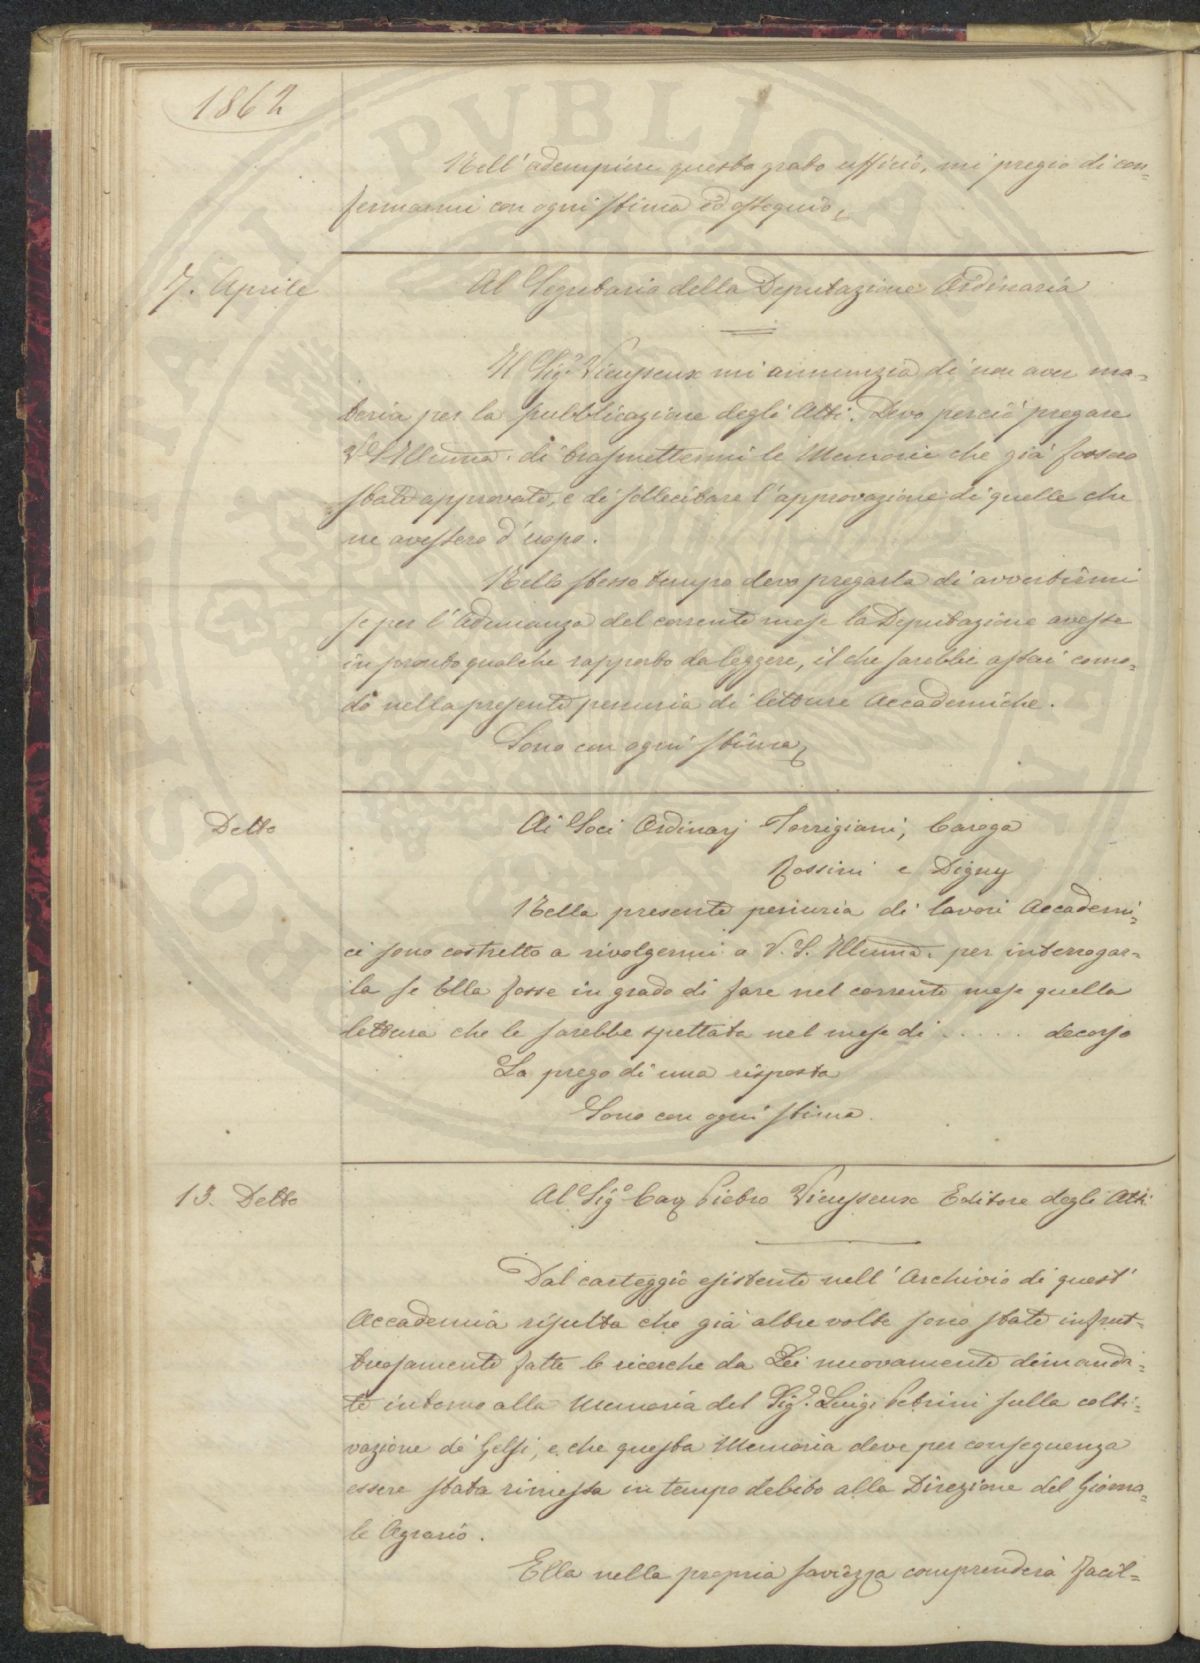 1862
Nell' adempiere questo grato ufficio, mi pregio di con=
fermarmi con ogni stima ed ossequio
7. Aprile
Al Segretario della Deputazione Ordinaria
Il Sigr. Vieusseux mi annunzia di non aver ma=
teria per la pubblicazione degli Atti. Devo perciò pregare
V. S. Illuma. di trasmettermi le Memorie che già fossero
state approvate, e di sollecitare l'approvazione di quelle che
ne avessero d'uopo.
Nello stesso tempo devo pregarla di avvertirmi
se per l'Adunanza del corrente mese la Deputazione avesse
in pronto qualche rapporto da leggere, il che sarebbe assai como=
do nella presente penuria di letture Accademiche.
Sono con ogni stima
Detto
Ai Soci Ordinarj Torrigiani, Carega
Rossini e Digny
Nella presente penuria di lavori Accademi=
ci sono costretto a rivolgermi a V. S. Illuma. per interrogar=
la se Ella fosse in grado di fare nel corrente mese quella
lettura che le sarebbe spettata nel mese di ..... decorso
La prego di una risposta
Sono con ogni stima.
13. Detto
Al Sigo. Cav Pietro Vieusseux Editore degli Atti
Dal carteggio esistente nell' Archivio di quest'
Accademia risulta che già altre volte sono state infrut=
tuosamente fatte le ricerche da Lei nuovamente dimanda=
te intorno alla Memoria del Sigr. Luigi Petrini sulla colti=
vazione de' Gelsi, e che questa Memoria deve per conseguenza
essere stata rimessa in tempo debito alla Direzione del Giorna=
le Agrario.
Ella nella propria saviezza comprenderà facil=
PVBLICAE PROSPERITATI AVGENDAE